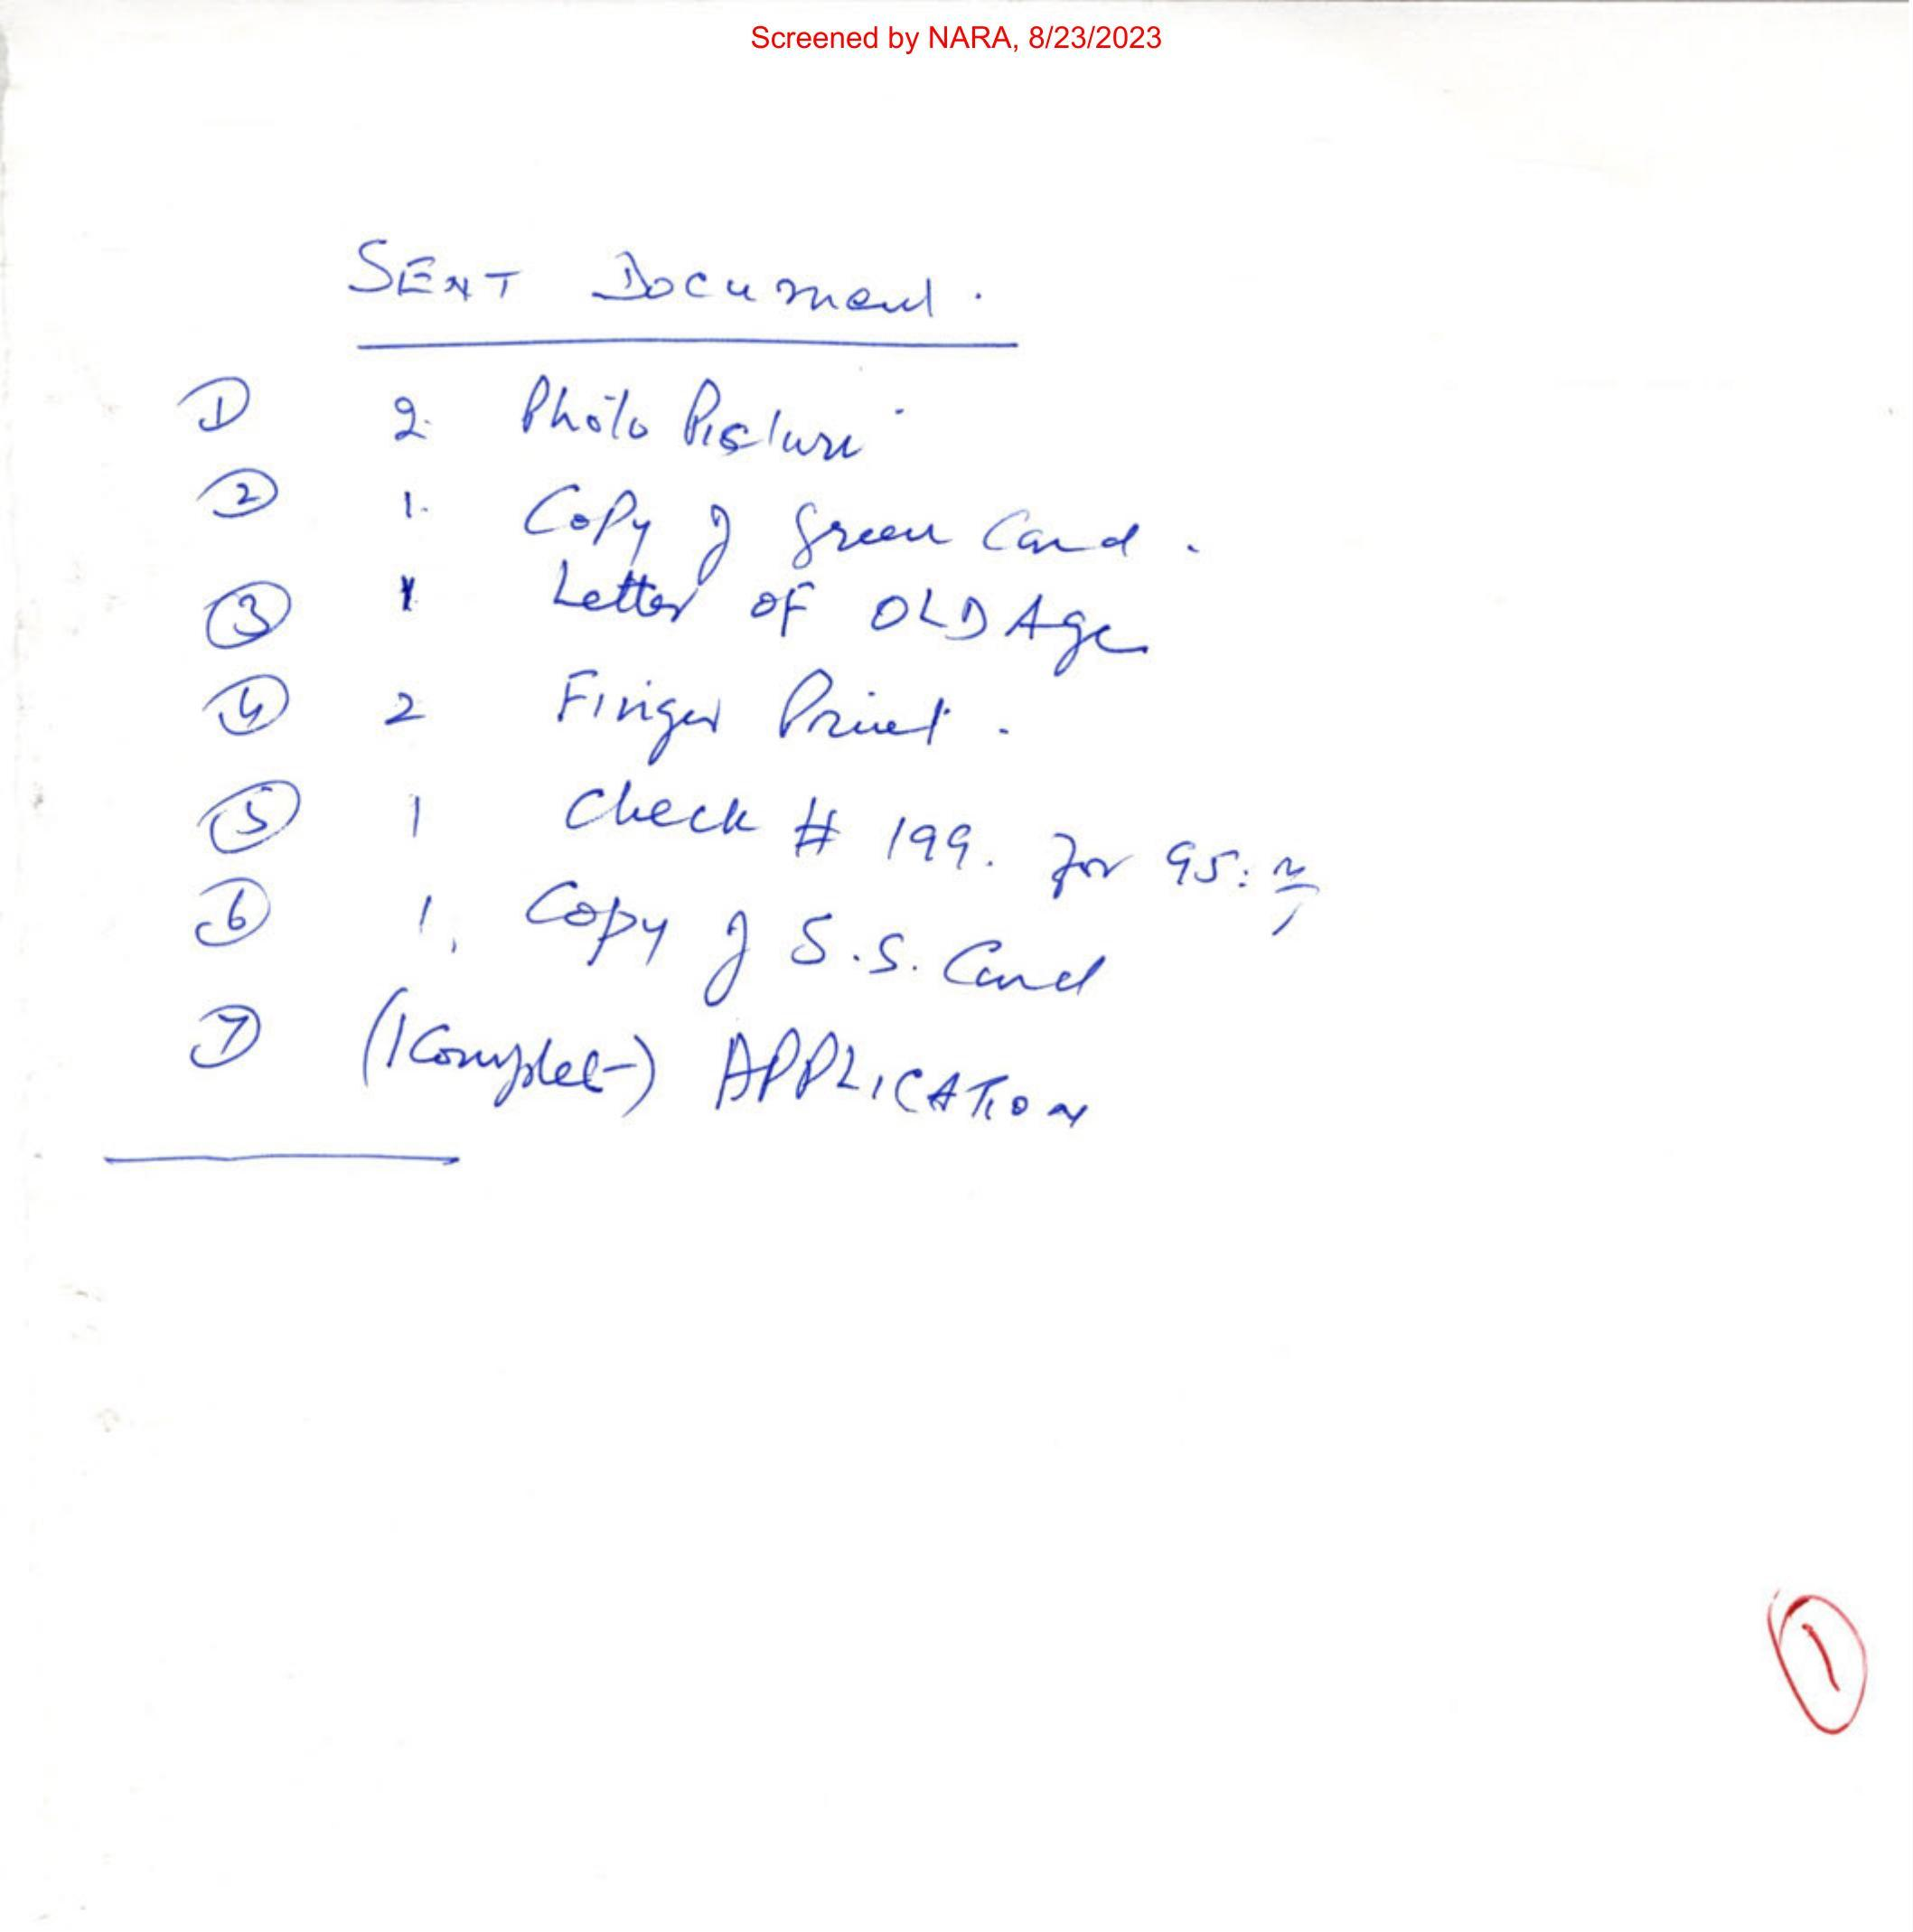 Screened by NARA, 8/23/2023
SENT Document.
① 2. Photo Picture
② 1. Copy of Green Card.
③ 1 Letter OF OLD Age
④ 2 Finger Print.
⑤ 1 Check # 199. For 95:
⑥ 1, Copy of S.S. Card
⑦ (1 Complet) APPLICATION
①